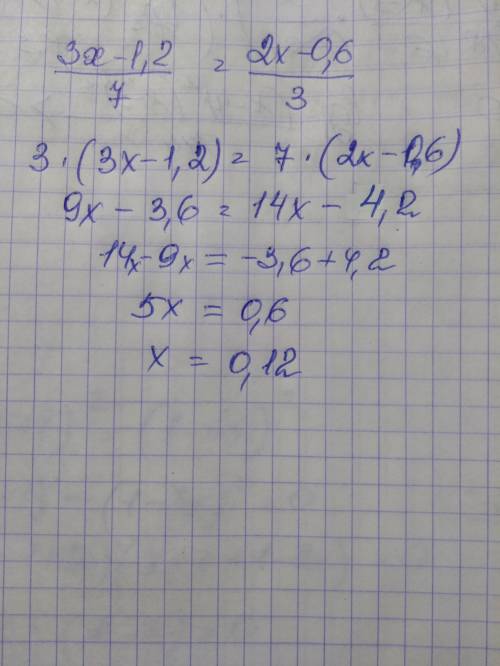 3x-1,2 / 7 = 2x-0,6 / 3
3·(3x-1,2) = 7·(2x-0,6)
9x - 3,6 = 14x - 4,2
14x-9x = -3,6+4,2
5x = 0,6
x = 0,12